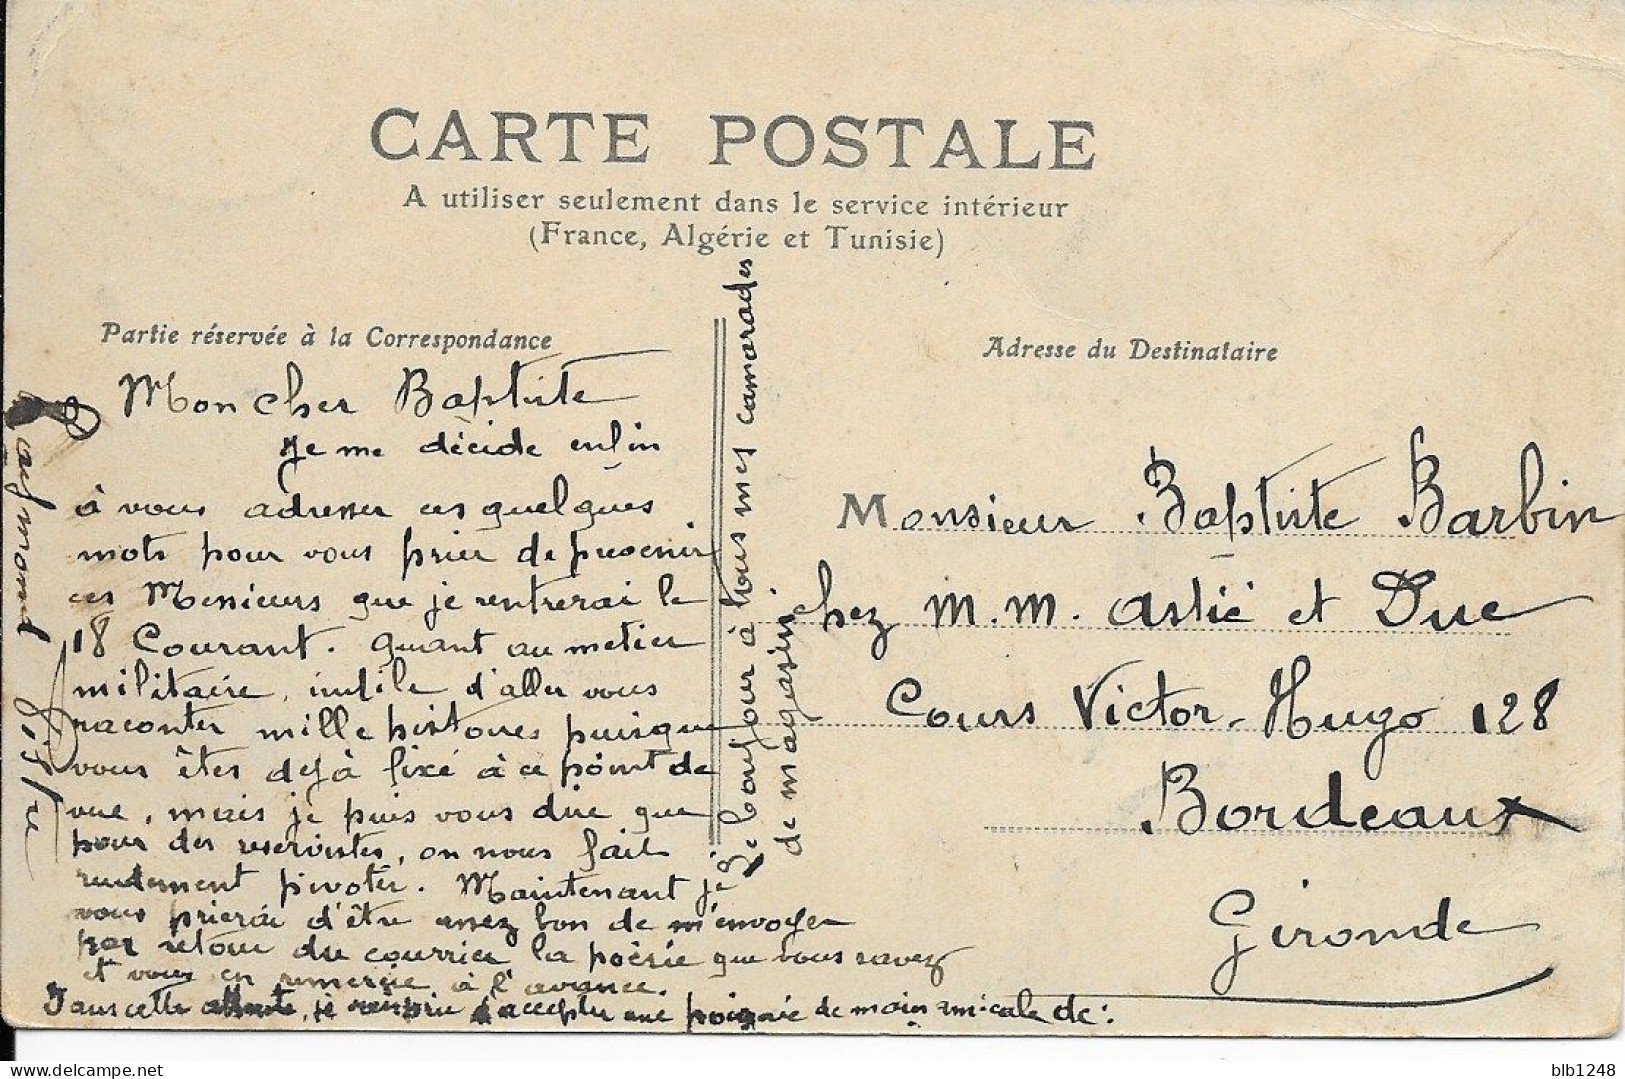 CARTE POSTALE
A utiliser seulement dans le service intérieur
(France, Algérie et Tunisie)
Partie réservée à la Correspondance
Mon cher Baptiste
Je me décide enfin
à vous adresser ces quelques
mots pour vous prier de prevenir
ces Messieurs que je rentrerai le
18 Courant. Quant au metier
militaire, inutile d'aller vous
raconter mille histoires puisque
vous êtes dejà fixé à ce point de
vue, mais je puis vous dire que
pour des reservistes, on nous fait
rudement pivoter. Maintenant je
vous prierai d'être assez bon de m'envoyer
par retour du courrier la poèsie que vous savez
et vous en remercie à l'avance.
Dans cette attente, je vous prie d'accepter une poignée de main amicale de:
Le bonjour à tous mes camarades
de magasin
Adresse du Destinataire
Monsieur Baptiste Barbin
chez M.M. Astié et Duc
Cours Victor-Hugo 128
Bordeaux
Gironde
delcampe.net
blb1248